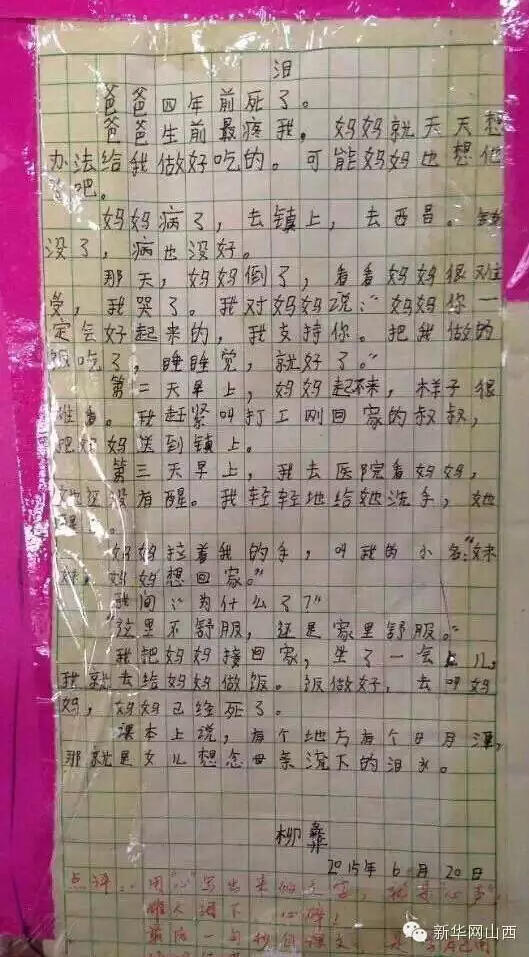 泪
爸爸四年前死了。
爸爸生前最疼我,妈妈就天天想
办法给我做好吃的。可能妈妈也想他
了吧。
妈妈病了,去镇上,去西昌。钱
没了,病也没好。
那天,妈妈倒了,看看妈妈很难
受,我哭了。我对妈妈说:“妈妈你一
定会好起来的,我支持你。把我做的
饭吃了,睡睡觉,就好了。”
第二天早上,妈妈起不来,样子很
难看。我赶紧叫打工刚回家的叔叔,
把妈妈送到镇上。
第三天早上,我去医院看妈妈,
她还没有醒。我轻轻地给她洗手,她
醒了。
妈妈拉着我的手,叫我的小名:“妹
妹,妈妈想回家。”
我问:“为什么了?”
“这里不舒服,还是家里舒服。”
我把妈妈接回家,坐了一会儿,
我就去给妈妈做饭。饭做好,去叫妈
妈,妈妈已经死了。
课本上说,有个地方有个日月潭,
那就是女儿想念母亲流下的泪水。
柳彝
2015年6月20日
点评:用“心”写出来的文字,就是“心声”,
催人泪下,心碎!
最后一句抄自课文,
新华网山西